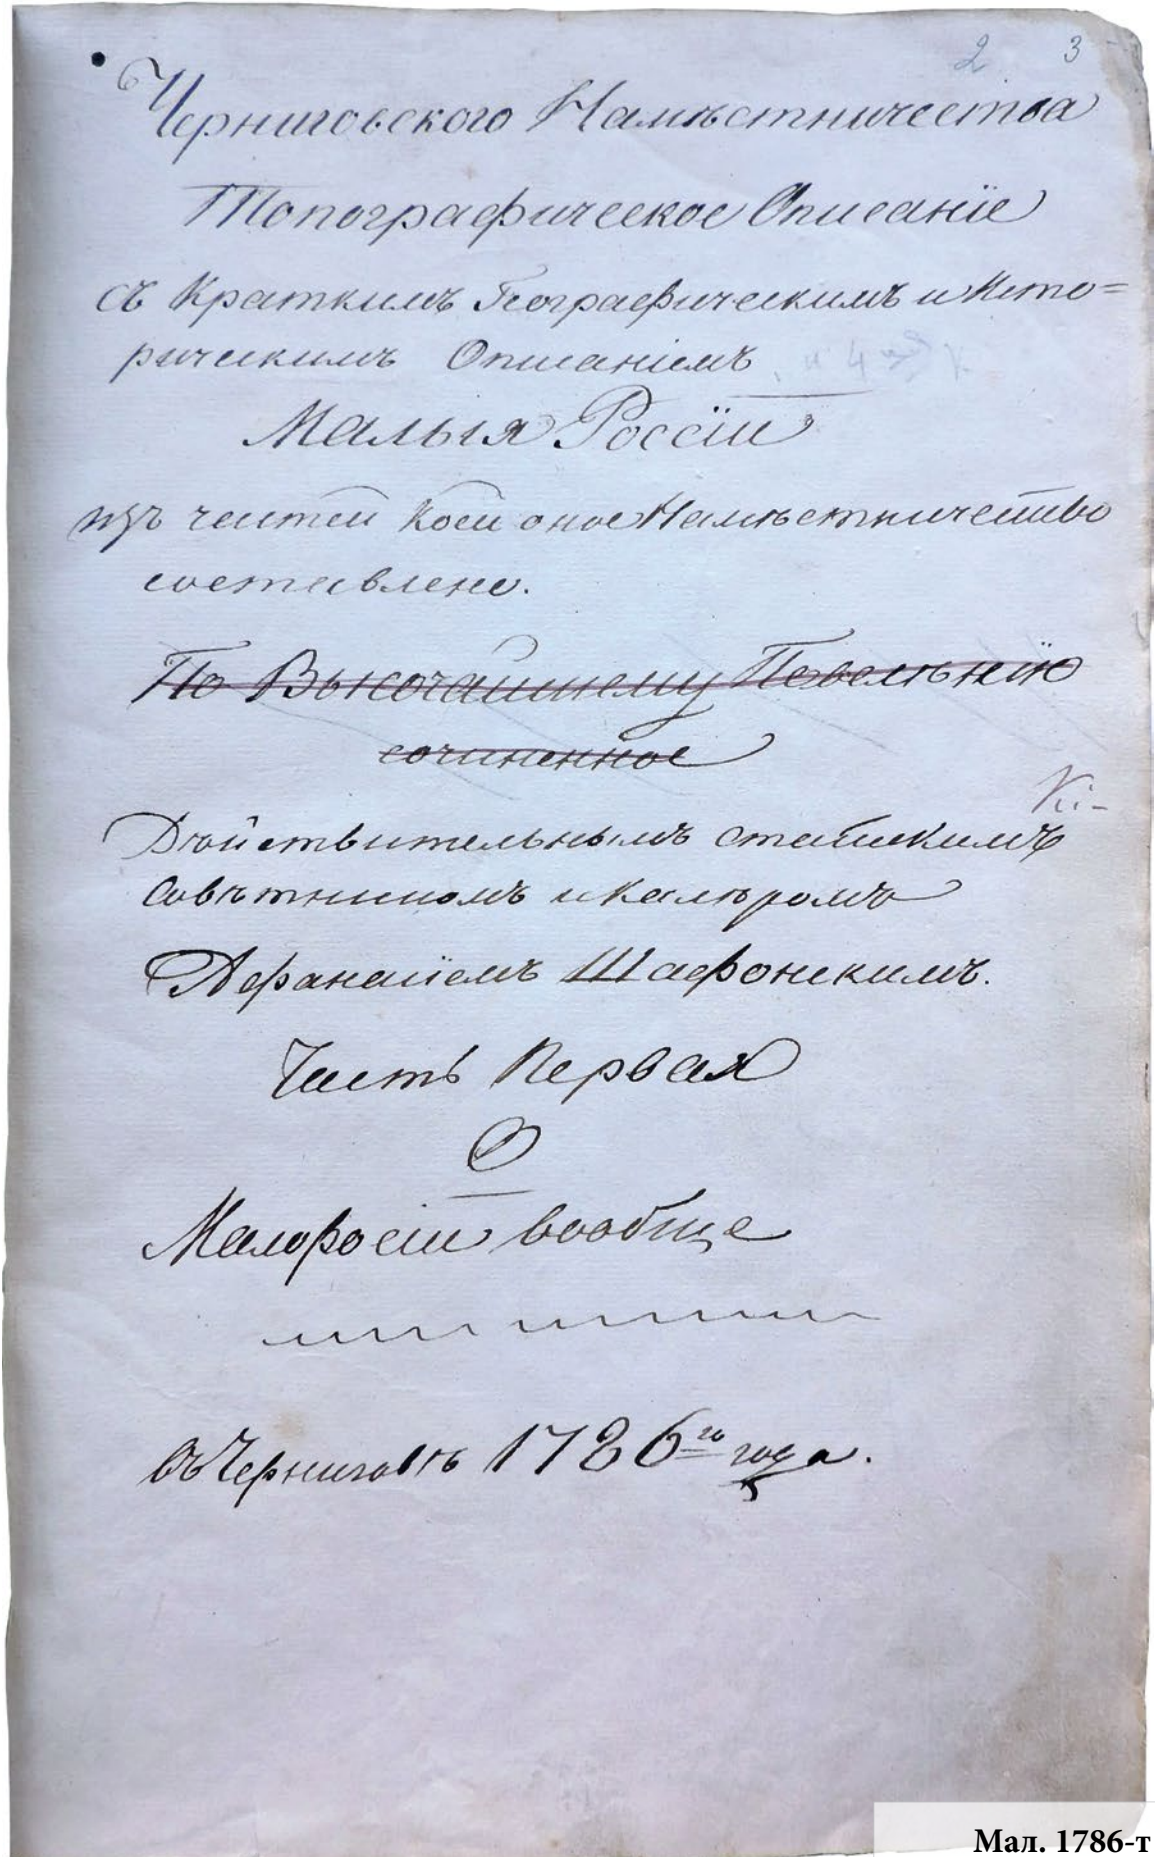 2 3
Черниговского Намѣстничества
Топографическое Описаніе
съ Краткимъ Географическимъ и Исто=
рическимъ Описаніемъ
Малыя Россіи
изъ частей коей оное Намѣстничество
составлено.
По Высочайшему Повелѣнію
сочиненное
Кі-
Дѣйствительнымъ статскимъ
совѣтникомъ и Кавалѣромъ
Афанасіемъ Шафонскимъ.
Часть Первая
О
Малоросіи вообще
въ Черниговѣ 1786го года.
Мал. 1786-т